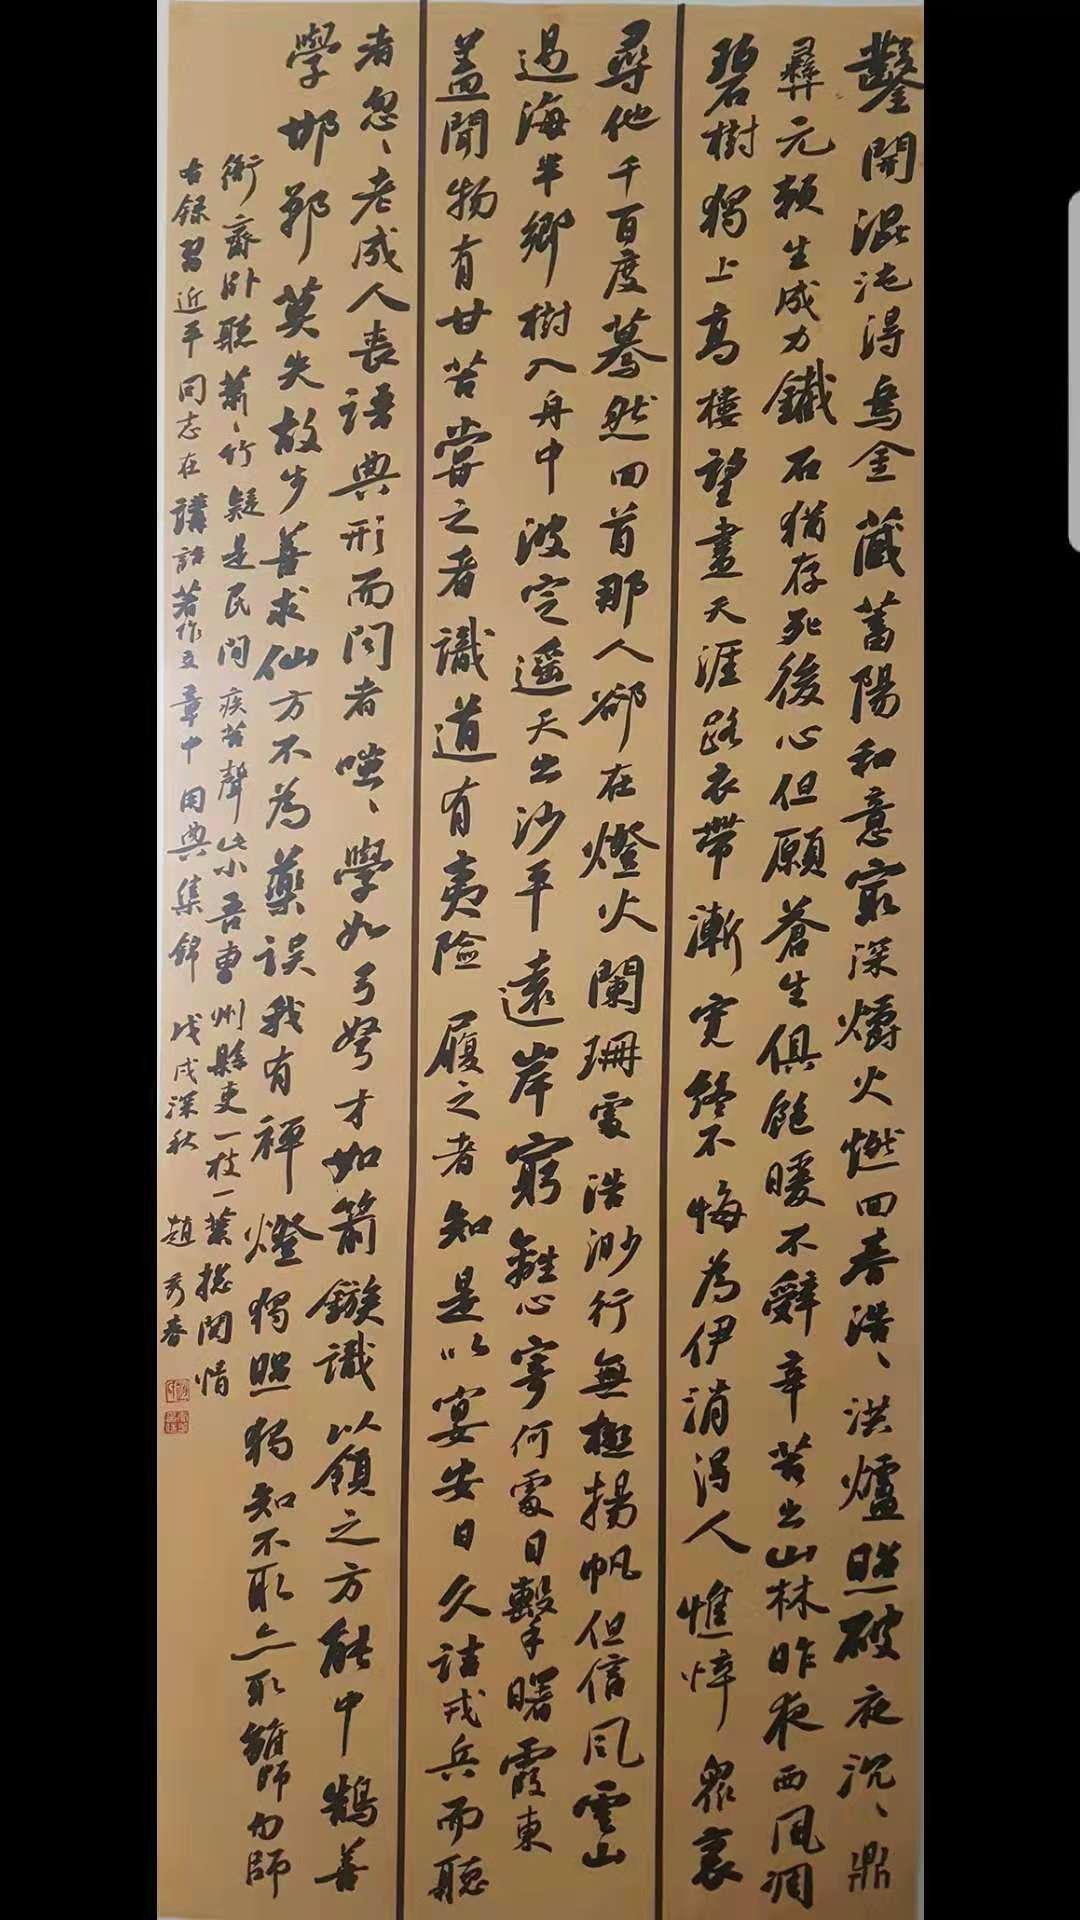 鑿開混沌得烏金藏蓄陽和意最深爝火燃回春浩、洪爐照破夜沉、鼎
彝元賴生成力鐵石猶存死後心但願蒼生俱飽暖不辭辛苦出山林昨夜西風凋
碧樹獨上高樓望盡天涯路衣帶漸寬終不悔為伊消得人憔悴眾裏
尋他千百度驀然回首那人卻在燈火闌珊處浩渺行無極揚帆但信風雲山
過海半鄉樹入舟中波定遥天出沙平遠岸窮離心寄何處目擊曙霞東
蓋聞物有甘苦嘗之者識道有夷險履之者知是以宴安日久詰戎兵而聽
者忽、老成人喪語典形而問者嗤、學如弓弩才如箭鏃識以領之方能中鵠善
學邯鄲莫失故步善求仙方不為藥誤我有禪燈獨照獨知不取亦取雖師勿師
衙齋卧聽蕭、竹疑是民間疾苦聲此小吾曹州縣吏一枝一葉總關情
右錄習近平同志在講話著作文章中用典集錦 戊戌深秋 趙秀春